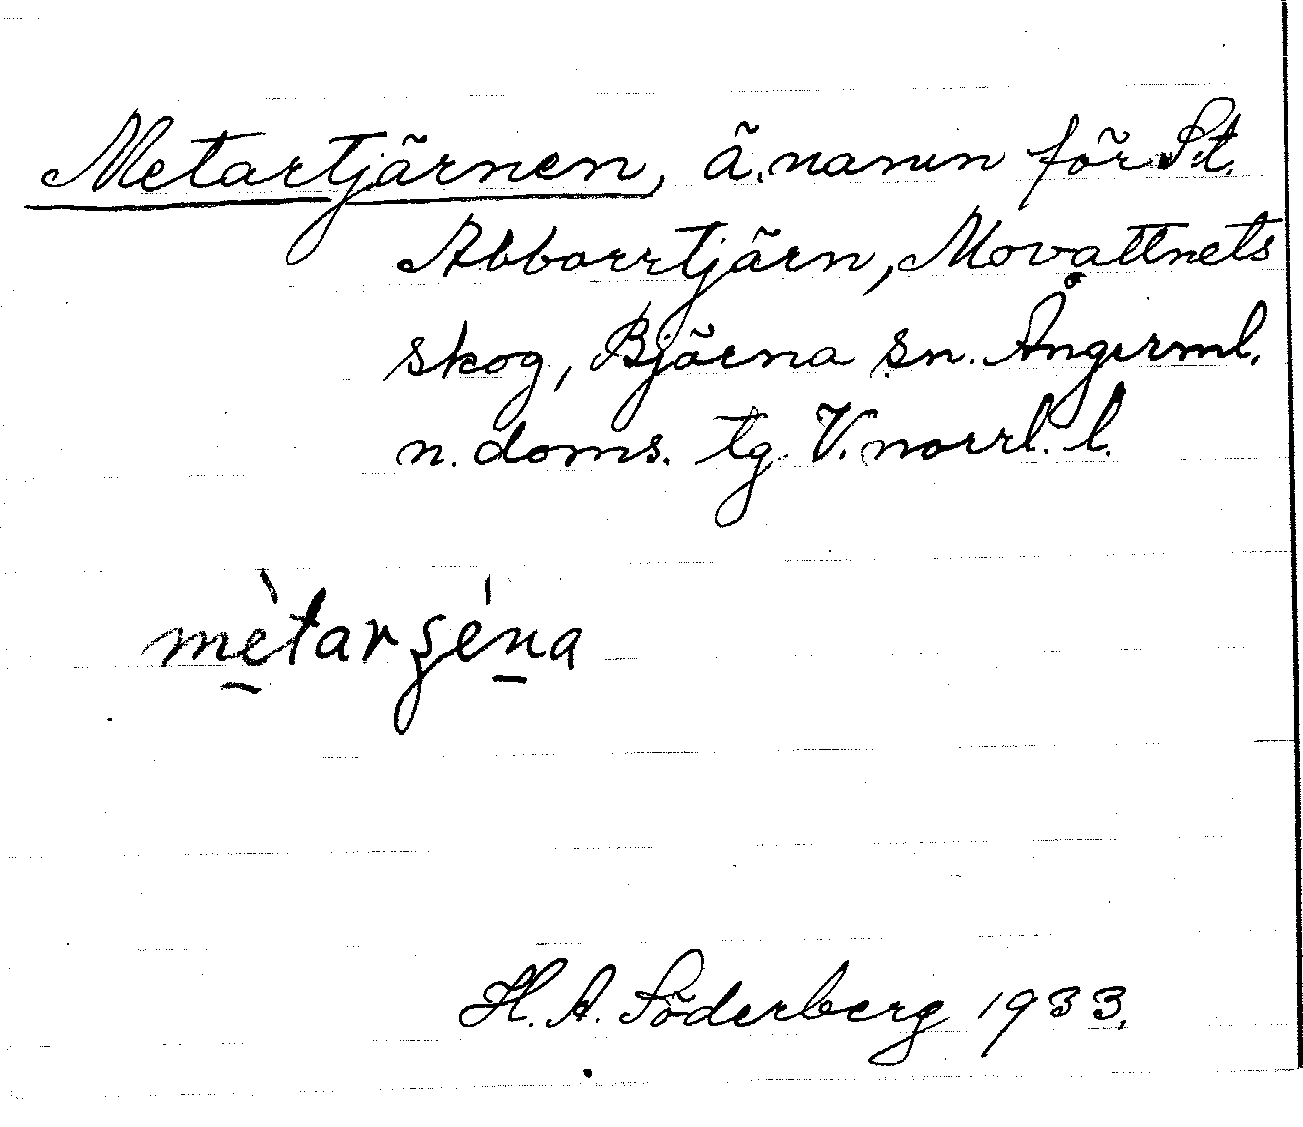 Metartjärnen, ä.namn för St.
Abborrtjärn, Movattnets
skog, Björna sn. Ångerml.
n. doms. tg. V.norrl. l.
H. A. Söderberg 1933.